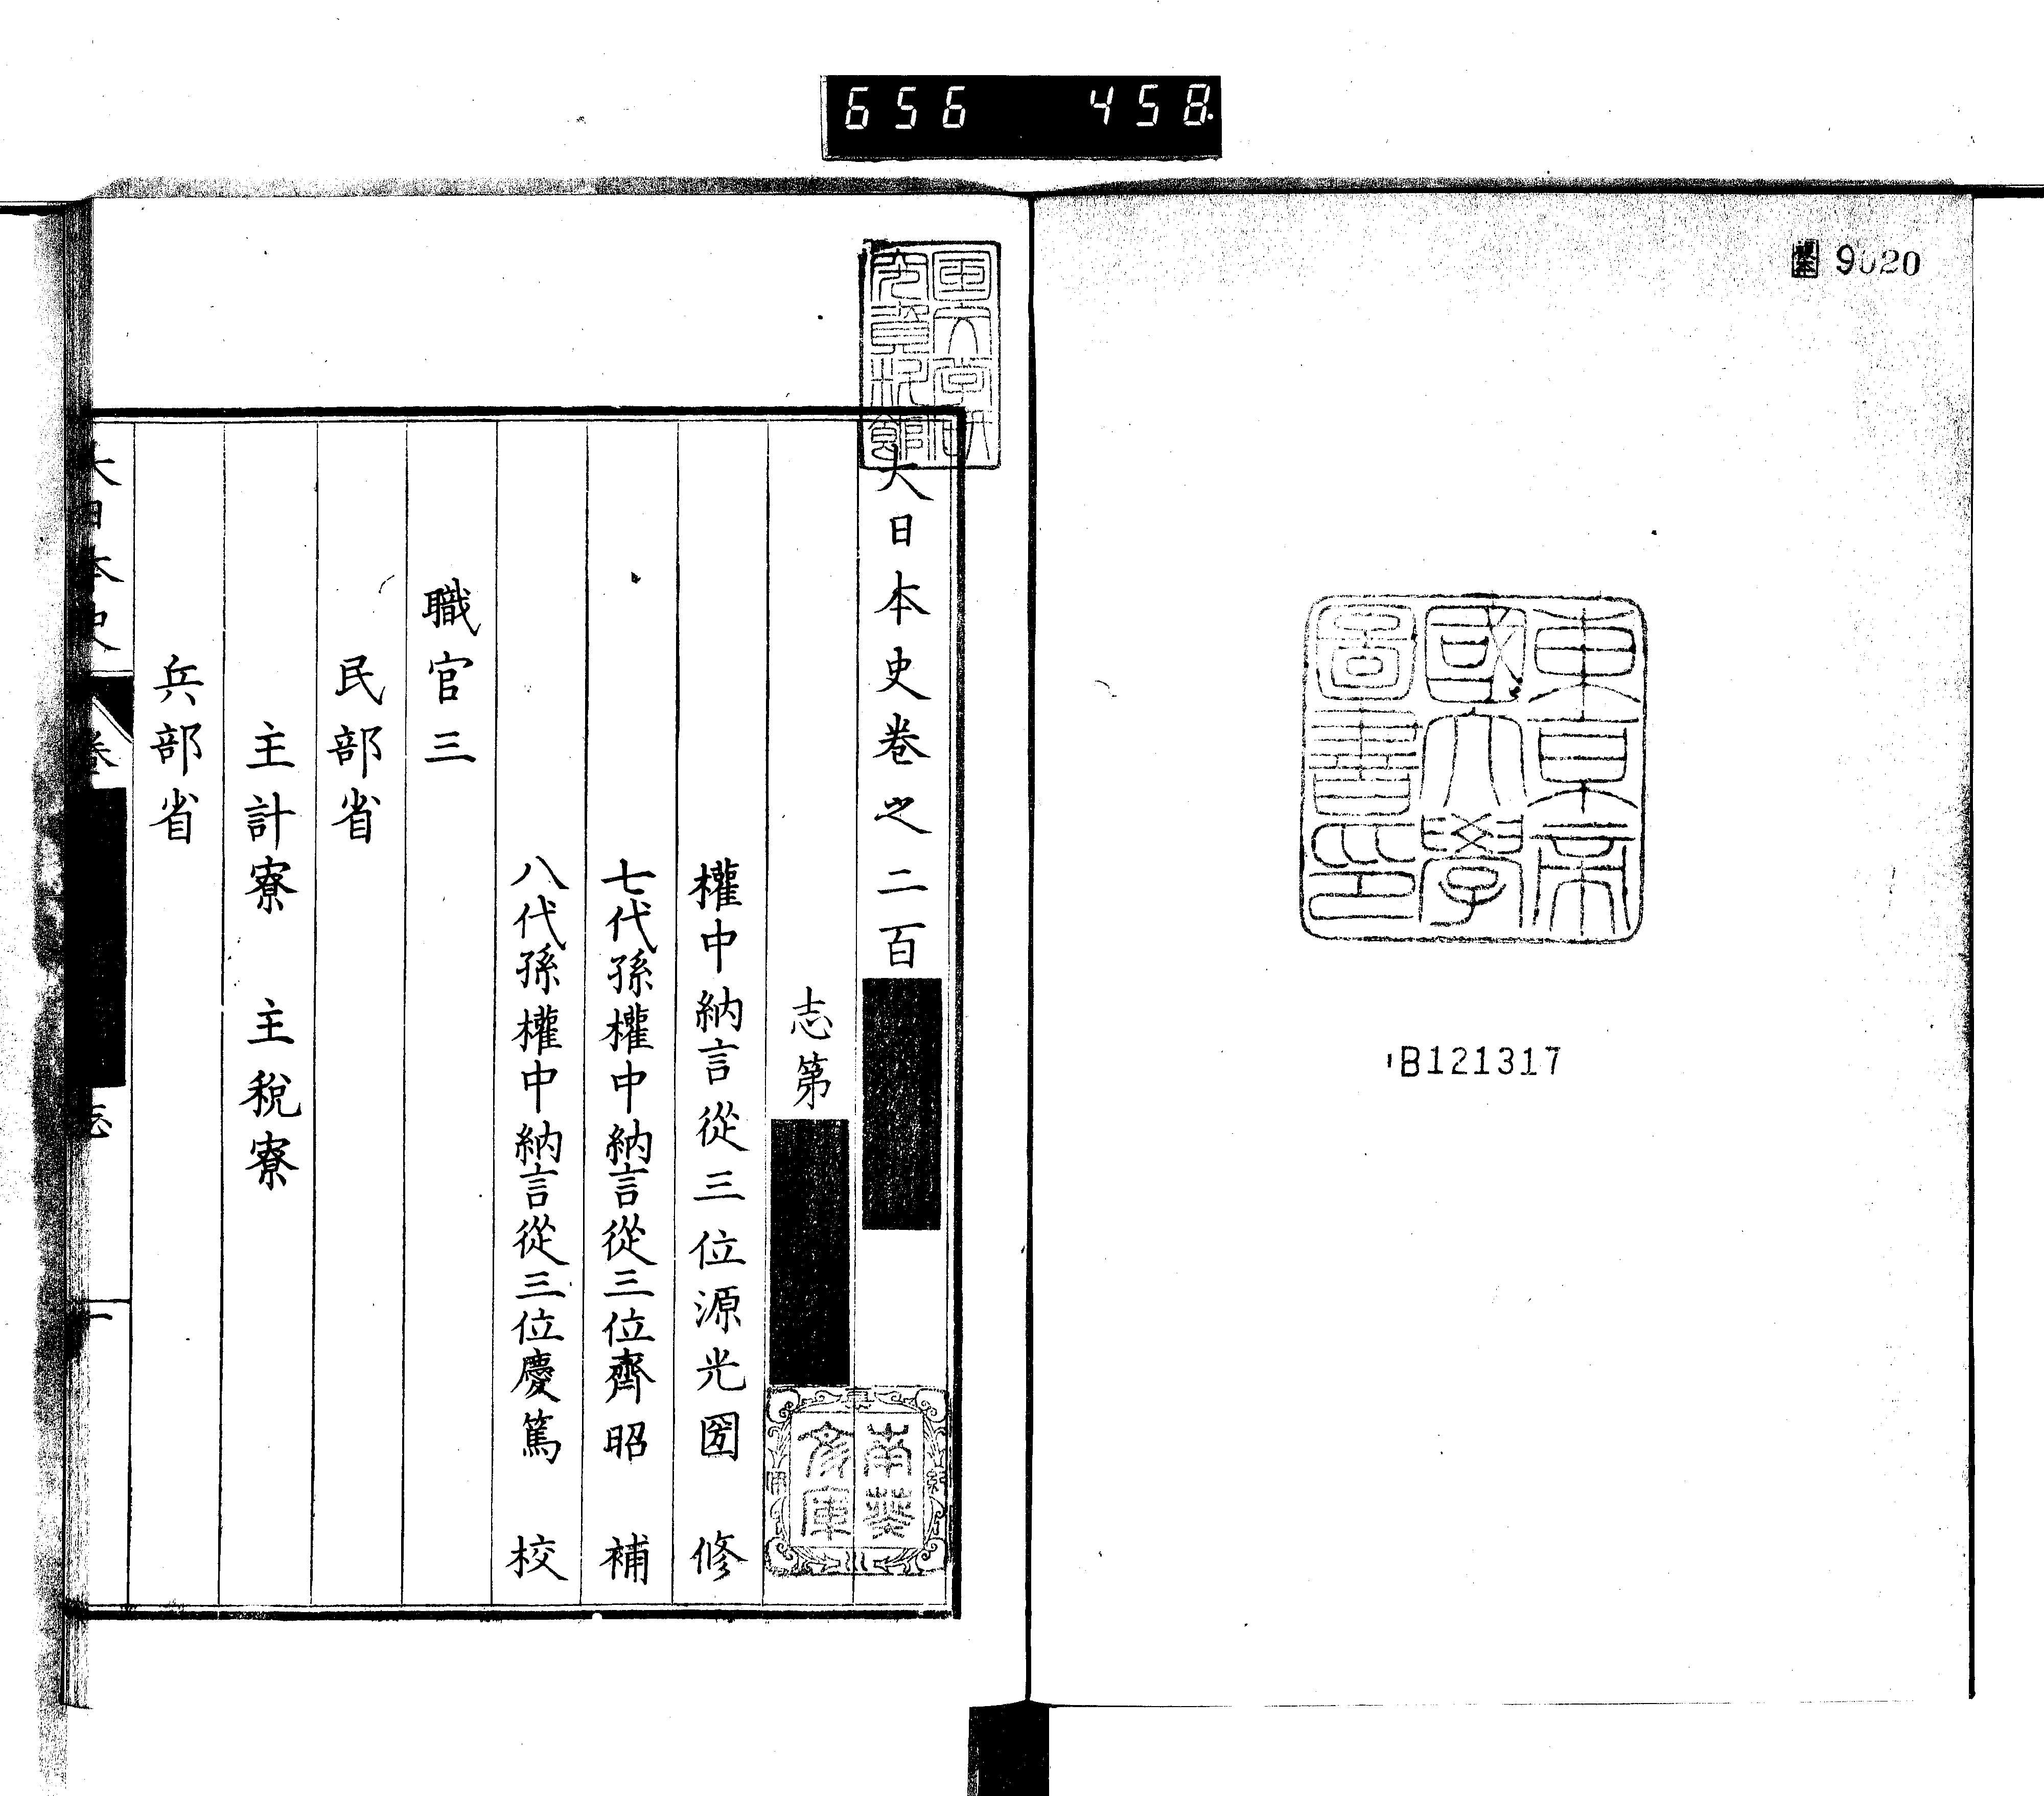 656 458
9020
東京帝
國大學
圖書印
B121317
國文學研
究資料館
大日本史卷之二百
志第
南葵
文庫
權中納言從三位源光圀 修
七代孫權中納言從三位齊昭 補
八代孫權中納言從三位慶篤 校
職官三
民部省
主計寮 主稅寮
兵部省
大日本史 卷 志 一